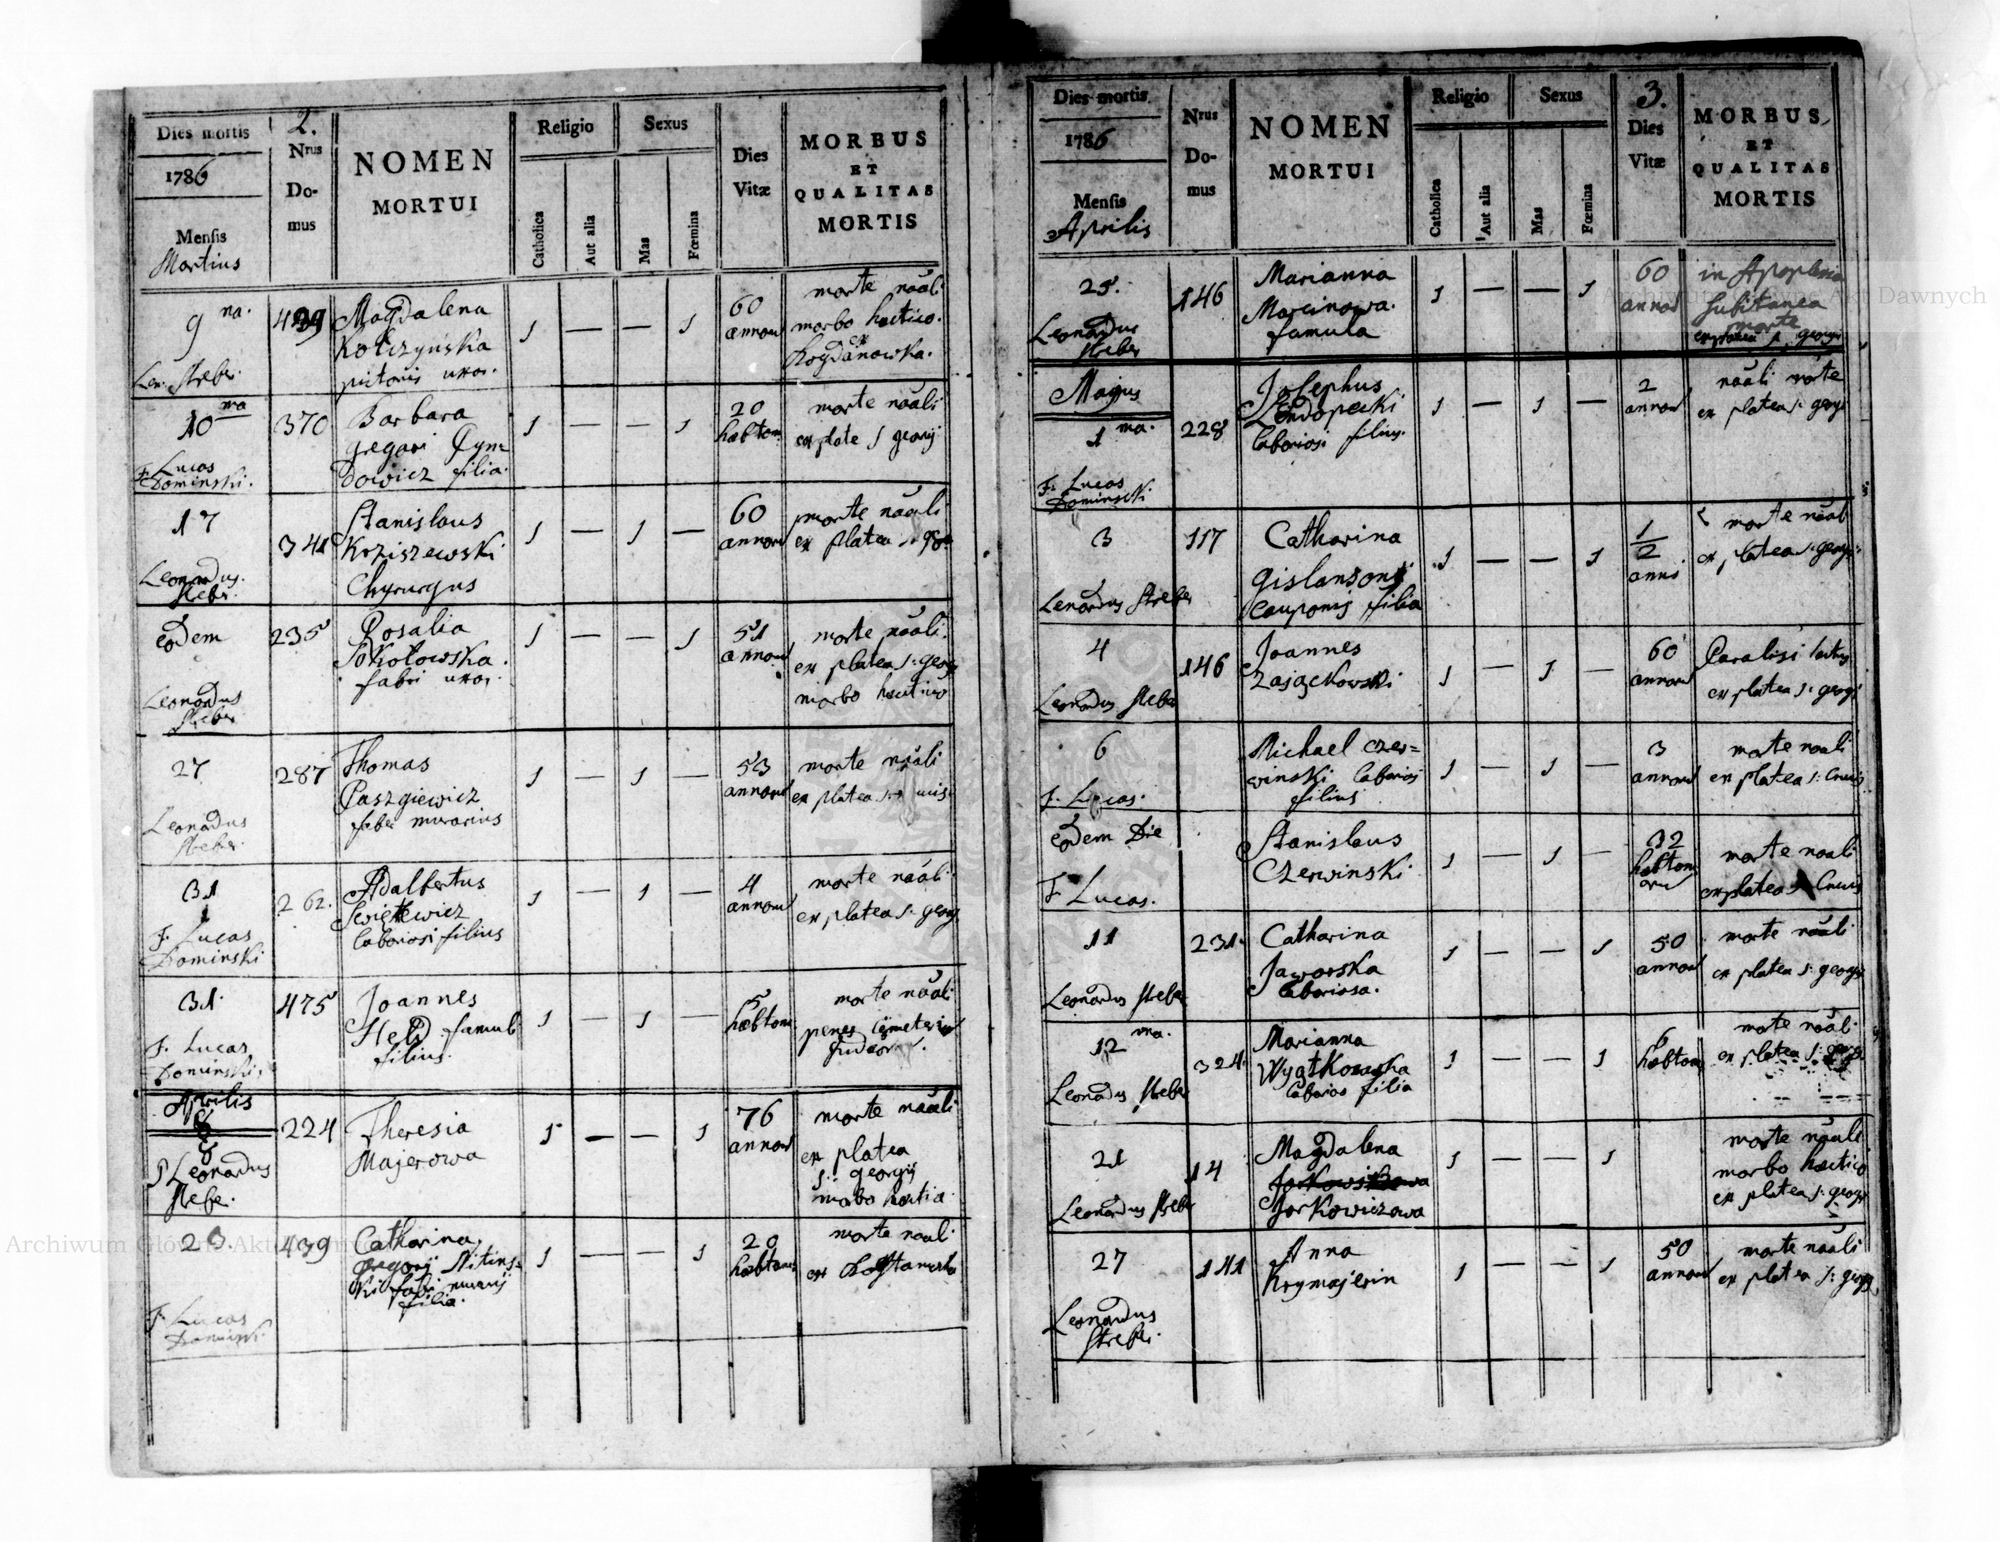 2.
Dies mortis
1786
Mensis
Martius
Nrus
Do-
mus
NOMEN
MORTUI
Religio
Catholica
Aut alia
Sexus
Mas
Fœmina
Dies
Vitæ
MORBUS
ET
QUALITAS
MORTIS
9 na.
Leo. Streber.
Magdalena
Kotczyńska
pictoris uxor.
1 — — 1
60
annorum
morte nāāli
morbo hectico.
ex
10 ma
F. Lucas
Dominski.
370
Barbara
gregori Dym=
dowicz filia.
1 — — 1
20
hebtom
morte nāāli
ex plate S georgij
17
Leonardus
Streber.
341
Stanislaus
Krziszewski
Chyrurgus
1 — 1 —
60
annorum
morte nāāli
ex platea
eodem
Leonardus
Streber
235
Rosalia
Sokołowska.
fabri uxor.
1 — — 1
51
annorum
morte nāāli.
ex platea S: georgij
morbo hectico
27
Leonardus
Streber.
287
Thomas
Paszgiewicz
faber murarius
1 — 1 —
53
annorum
morte nāāli
ex platea S:
31
F. Lucas
Dominski
262.
Adalbertus
Swiętewicz
laboriosi filius
1 — 1 —
4
annorum
morte nāāli
ex platea S: georgij
31.
F. Lucas
Dominski.
475
Joannes
Held famuli
filius.
1 — 1 —
5
hebtom
morte nāāli
penes Cymeterium
Aprilis
8
P Leonardus
Strebe.
224
Theresia
Majerowa
1 — — 1
76
annorum
morte nāāli
ex platea
S: georgij
morbo hectica
20.
F. Lucas
Dominski
439
Catharina
gregorij Nitins=
ki fabri murarij
filia.
1 — — 1
20
hebtom
morte nāāli
ex
3.
Dies mortis
1786
Mensis
Aprilis
Nrus
Do-
mus
NOMEN
MORTUI
Religio
Catholica
Aut alia
Sexus
Mas
Fœmina
Dies
Vitæ
MORBUS
ET
QUALITAS
MORTIS
25.
Leonardus
Streber
146
Marianna
Marcinowa.
famula
1 — — 1
60
annorum
in Apoplexia
subitanea
morte
ex platea S. georgij
Majus
1 ma.
F. Lucas
Dominski
228
Josephus
laboriosi filius.
1 — 1 —
2
annorum
nāāli morte
ex platea S: georgij
3
Lenardus Streber
117
Catharina
gislansonij
cauponis filia
1 — — 1
1/2
anni
morte nāāli
ex platea S: georgij
4
Leonardus Streber
146
Joannes
Zajączkowski
1 — 1 —
60
annorum
Paralisi tactus
ex platea S: georgij
6
F. Lucas.
Michael Czer=
winski laboriosi
filius
1 — 1 —
3
annorum
morte nāāli
ex platea S: Crucis
eodem Die
F Lucas.
Stanislaus
Czerwinski
1 — 1 —
32
hebtom
orum
morte nāāli
ex platea S Crucis
11
Leonardus Streber
231.
Catharina
Jaworska
laboriosa.
1 — — 1
50
annorum
morte nāāli
ex platea S: georgij
12 ma.
Leonardus Streber
324.
Marianna
Wyątkowska
laborios filia
1 — — 1
6
hebtom
morte nāāli
ex platea S: georgij
21
Leonardus Streber
14
Magdalena
Jorkowiczowa
1 — — 1
morte nāāli
morbo hectico
ex platea S: georgij
27
Leonardus
Streber.
141
Anna
Krymajerin
1 — — 1
50
annorum
morte nāāli
ex platea S: georgij
Archiwum Główne Akt Dawnych
Archiwum Główne Akt Dawnych